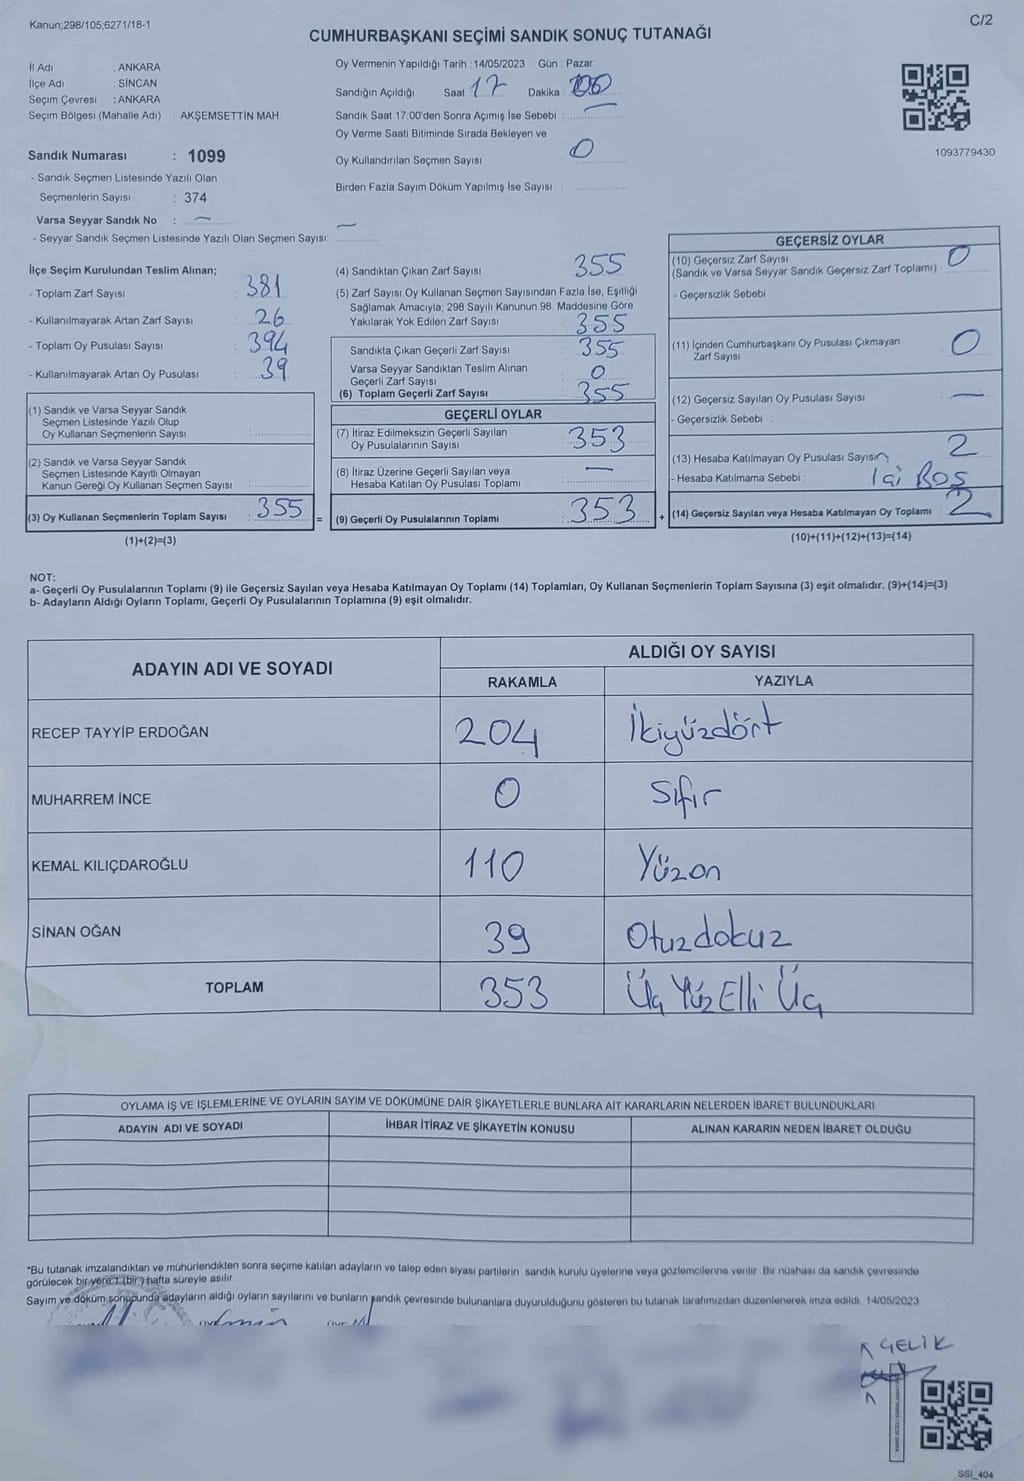 Kanun;298/105;6271/18-1
C/2
CUMHURBAŞKANI SEÇİMİ SANDIK SONUÇ TUTANAĞI
İl Adı : ANKARA
İlçe Adı : SİNCAN
Seçim Çevresi : ANKARA
Seçim Bölgesi (Mahalle Adı) : AKŞEMSETTİN MAH
Sandık Numarası : 1099
- Sandık Seçmen Listesinde Yazılı Olan
Seçmenlerin Sayısı : 374
Varsa Seyyar Sandık No : —
- Seyyar Sandık Seçmen Listesinde Yazılı Olan Seçmen Sayısı: —
Oy Vermenin Yapıldığı Tarih : 14/05/2023 Gün : Pazar
Sandığın Açıldığı Saat 17 Dakika : 00
Sandık Saat 17:00'den Sonra Açımış İse Sebebi : —
Oy Verme Saati Bitiminde Sırada Bekleyen ve
Oy Kullandırılan Seçmen Sayısı : 0
Birden Fazla Sayım Döküm Yapılmış İse Sayısı :
1093779430
İlçe Seçim Kurulundan Teslim Alınan;
- Toplam Zarf Sayısı : 381
- Kullanılmayarak Artan Zarf Sayısı : 26
- Toplam Oy Pusulası Sayısı : 394
- Kullanılmayarak Artan Oy Pusulası : 39
(1) Sandık ve Varsa Seyyar Sandık
Seçmen Listesinde Yazılı Olup
Oy Kullanan Seçmenlerin Sayısı :
(2) Sandık ve Varsa Seyyar Sandık
Seçmen Listesinde Kayıtlı Olmayan
Kanun Gereği Oy Kullanan Seçmen Sayısı :
(3) Oy Kullanan Seçmenlerin Toplam Sayısı : 355
(1)+(2)=(3)
=
(4) Sandıktan Çıkan Zarf Sayısı : 355
(5) Zarf Sayısı Oy Kullanan Seçmen Sayısından Fazla İse, Eşitliği
Sağlamak Amacıyla; 298 Sayılı Kanunun 98. Maddesine Göre
Yakılarak Yok Edilen Zarf Sayısı : 355
Sandıkta Çıkan Geçerli Zarf Sayısı : 355
Varsa Seyyar Sandıktan Teslim Alınan
Geçerli Zarf Sayısı : 0
(6) Toplam Geçerli Zarf Sayısı : 355
GEÇERLİ OYLAR
(7) İtiraz Edilmeksizin Geçerli Sayılan
Oy Pusulalarının Sayısı : 353
(8) İtiraz Üzerine Geçerli Sayılan veya
Hesaba Katılan Oy Pusulası Toplamı : —
(9) Geçerli Oy Pusulalarının Toplamı : 353
+
GEÇERSİZ OYLAR
(10) Geçersiz Zarf Sayısı
(Sandık ve Varsa Seyyar Sandık Geçersiz Zarf Toplamı) : 0
- Geçersizlik Sebebi :
(11) İçinden Cumhurbaşkanı Oy Pusulası Çıkmayan
Zarf Sayısı : 0
(12) Geçersiz Sayılan Oy Pusulası Sayısı : —
- Geçersizlik Sebebi :
(13) Hesaba Katılmayan Oy Pusulası Sayısı : 2
- Hesaba Katılmama Sebebi : İçi Boş
(14) Geçersiz Sayılan veya Hesaba Katılmayan Oy Toplamı : 2
(10)+(11)+(12)+(13)=(14)
NOT:
a- Geçerli Oy Pusulalarının Toplamı (9) ile Geçersiz Sayılan veya Hesaba Katılmayan Oy Toplamı (14) Toplamları, Oy Kullanan Seçmenlerin Toplam Sayısına (3) eşit olmalıdır. (9)+(14)=(3)
b- Adayların Aldığı Oyların Toplamı, Geçerli Oy Pusulalarının Toplamına (9) eşit olmalıdır.
ADAYIN ADI VE SOYADI
ALDIĞI OY SAYISI
RAKAMLA YAZIYLA
RECEP TAYYİP ERDOĞAN 204 İkiyüzdört
MUHARREM İNCE 0 Sıfır
KEMAL KILIÇDAROĞLU 110 Yüzon
SİNAN OĞAN 39 Otuzdokuz
TOPLAM 353 Üç Yüz Elli Üç
OYLAMA İŞ VE İŞLEMLERİNE VE OYLARIN SAYIM VE DÖKÜMÜNE DAİR ŞİKAYETLERLE BUNLARA AİT KARARLARIN NELERDEN İBARET BULUNDUKLARI
ADAYIN ADI VE SOYADI İHBAR İTİRAZ VE ŞİKAYETİN KONUSU ALINAN KARARIN NEDEN İBARET OLDUĞU
*Bu tutanak imzalandıktan ve mühürlendikten sonra seçime katılan adayların ve talep eden siyasi partilerin sandık kurulu üyelerine veya gözlemcilerine verilir. Bir nüshası da sandık çevresinde
görülecek bir yere 1 (bir) hafta süreyle asılır.
Sayım ve döküm sonucunda adayların aldığı oyların sayılarını ve bunların sandık çevresinde bulunanlara duyurulduğunu gösteren bu tutanak tarafımızdan düzenlenerek imza edildi. 14/05/2023
ÇELİK
SSI_404